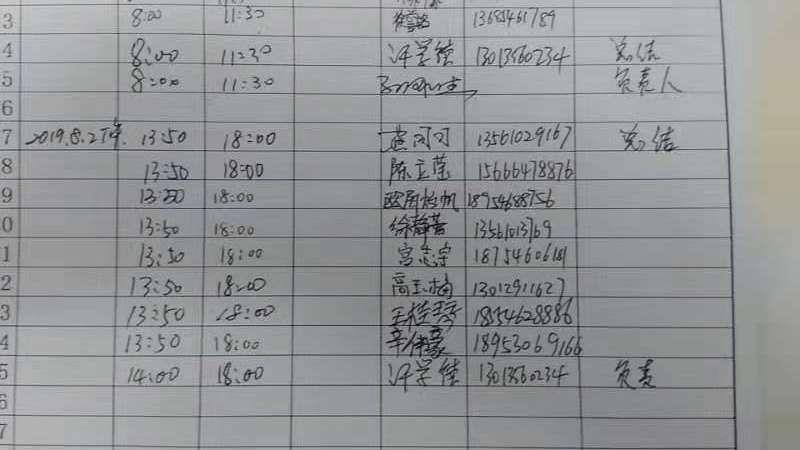 3 8:00 11:30 13685461789
4 8:00 11:30 许学健 13013560234 总结
5 8:00 11:30 负责人
6
7 2019.8.2下午 13:50 18:00 13561029167 总结
8 13:50 18:00 陈立莹 15666478876
9 13:50 18:00 18954688756
0 13:50 18:00 徐静蕾 13561013769
1 13:50 18:00 宫志宇 18754606181
2 13:50 18:00 高玉梅 13012911627
3 13:50 18:00 王桂琴 18554628886
4 13:50 18:00 18953069166
5 14:00 18:00 许学健 13013560234 负责
6
7